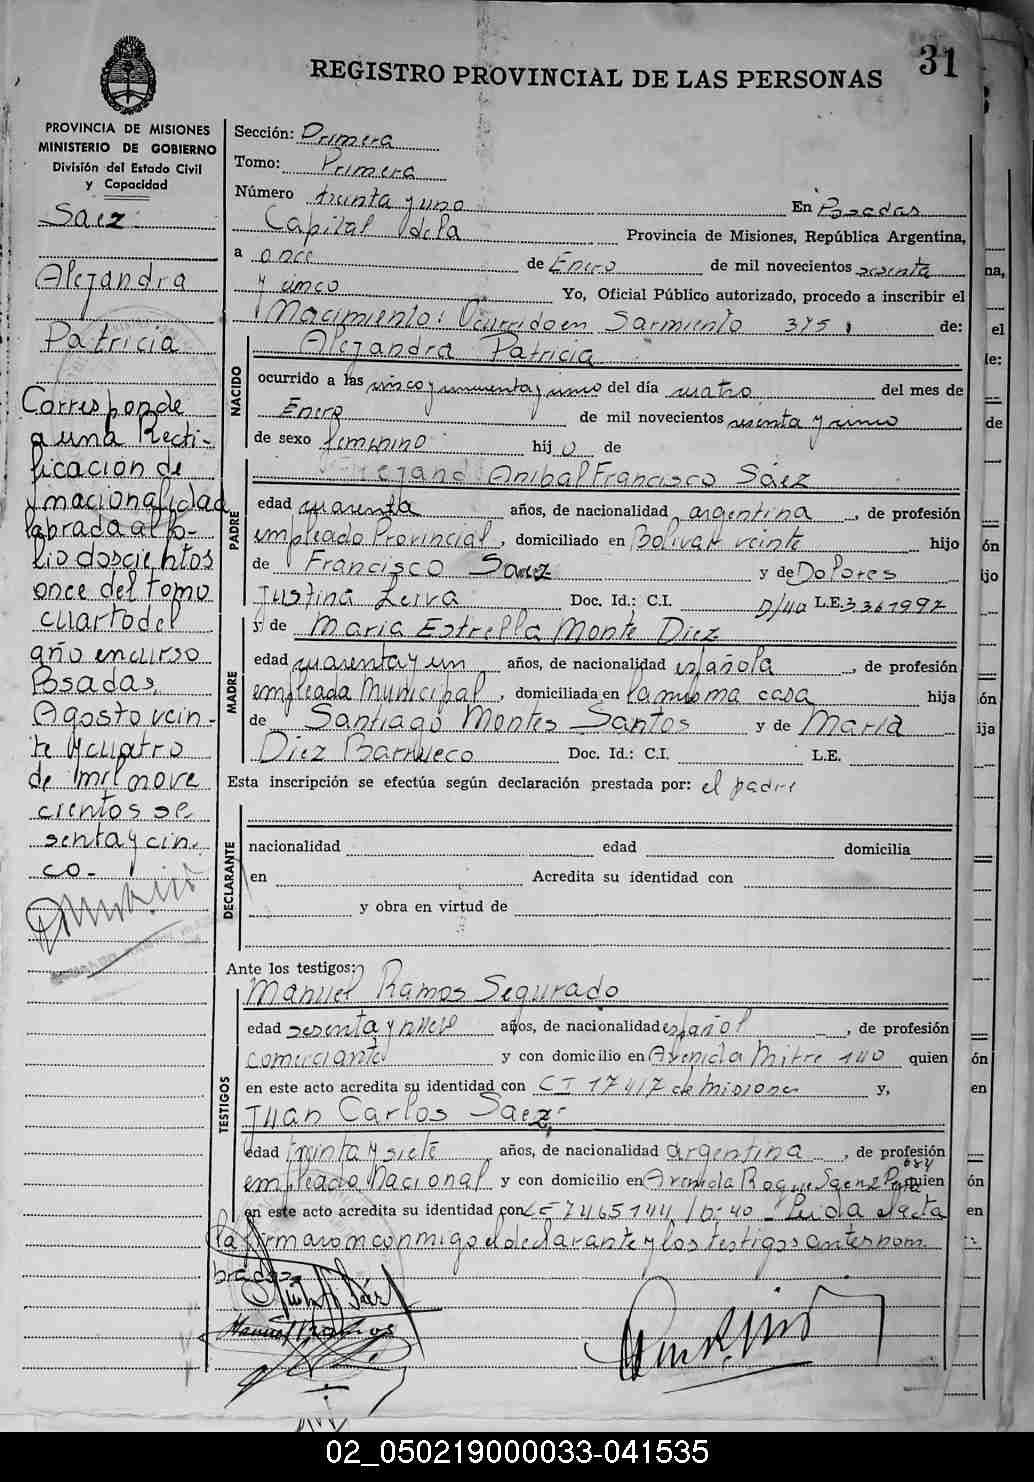 31
REGISTRO PROVINCIAL DE LAS PERSONAS
PROVINCIA DE MISIONES
MINISTERIO DE GOBIERNO
División del Estado Civil
y Capacidad
Saez:
Alejandra
Patricia
Corresponde
a una Recti-
ficación de
nacionalidad
labrada al fo-
lio doscientos
once del tomo
cuarto del
año en curso
Posadas,
Agosto vein-
te y cuatro
de mil nove
cientos se
senta y cin-
co-
Sección: Primera
Tomo: Primera
Número treinta y uno En Posadas
Capital de la Provincia de Misiones, República Argentina,
a once de Enero de mil novecientos sesenta
y cinco Yo, Oficial Público autorizado, procedo a inscribir el
Nacimiento: Ocurrido en Sarmiento 375 de:
NACIDO
Alejandra Patricia
ocurrido a las cinco y cincuenta y cinco del día cuatro del mes de
Enero de mil novecientos sesenta y cinco
de sexo femenino hij o de
PADRE
Anibal Francisco Sáez
edad cuarenta años, de nacionalidad argentina, de profesión
empleado Provincial, domiciliado en Bolivar veinte hijo
de Francisco Saez y de Dolores
Justina Leiva Doc. Id.: C.I. D/40 L.E. 3361992
MADRE
y de Maria Estrella Monte Diez
edad cuarenta y un años, de nacionalidad española, de profesión
empleada Municipal, domiciliada en la misma casa hija
de Santiago Montes Santos y de Maria
Diez Barrueco Doc. Id.: C.I. L.E.
Esta inscripción se efectúa según declaración prestada por: el padre
DECLARANTE
nacionalidad edad domicilia
en Acredita su identidad con
y obra en virtud de
Ante los testigos:
TESTIGOS
Manuel Ramos Segurado
edad sesenta y nueve años, de nacionalidad español, de profesión
comerciante y con domicilio en Avenida Mitre 140 quien
en este acto acredita su identidad con CI 17417 de Misiones y,
Juan Carlos Saez-
edad treinta y siete años, de nacionalidad argentina, de profesión
684
empleado Nacional y con domicilio en Avenida Roque Saenz Peña quien
en este acto acredita su identidad con LE 7465144 D-40 - Leida el acta
la firmaron conmigo el declarante y los testigos antes nom
brados.
Manuel Ramos
na,
el
le:
de
ón
ijo
ón
ija
ón
en
ón
en
02_050219000033-041535